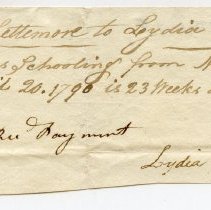 Lettemore to Lydia
s Schooling from N
il 20. 1790 is 23 Weeks
Raymint
Lydia